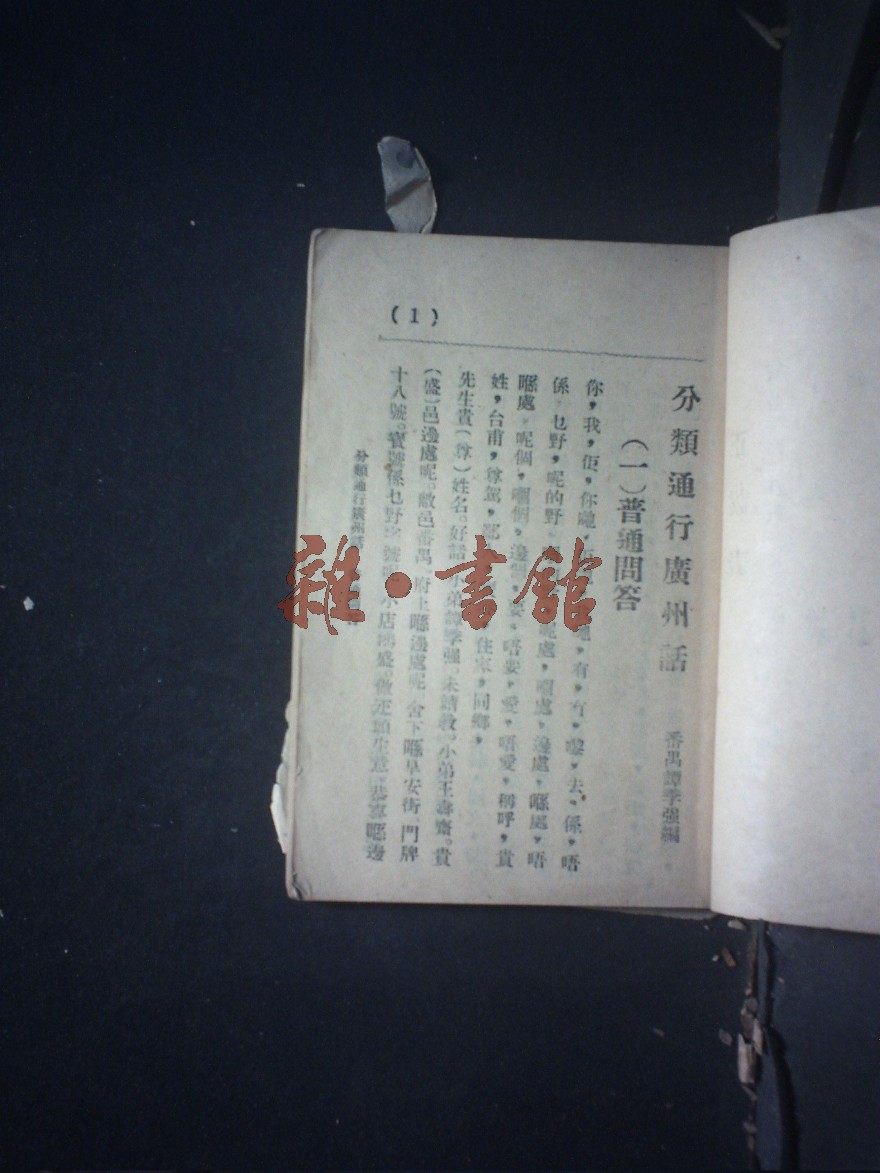 (1)
分類通行廣州話
番禺譚季强編
(一)普通問答
你,我,佢,你哋, 有,冇,嚟,去,係,唔
係,乜野,呢的野 呢處,嗰處,邊處,喺處,唔
喺處,呢個,嗰個,邊 唔要,愛,唔愛,稱呼,貴
姓,台甫,尊駕, 住家,同鄉,
先生貴(尊)姓名。好話,小弟譚季强。未請教。小弟王壽齋。貴
(盛)邑邊處呢。敝邑番禺。府上喺邊處呢 舍下喺早安街,門牌
十八號。寶號係乜野 小店鴻盛。做 頭生意。恭喜喺邊
分類通行廣州話
雜·書館